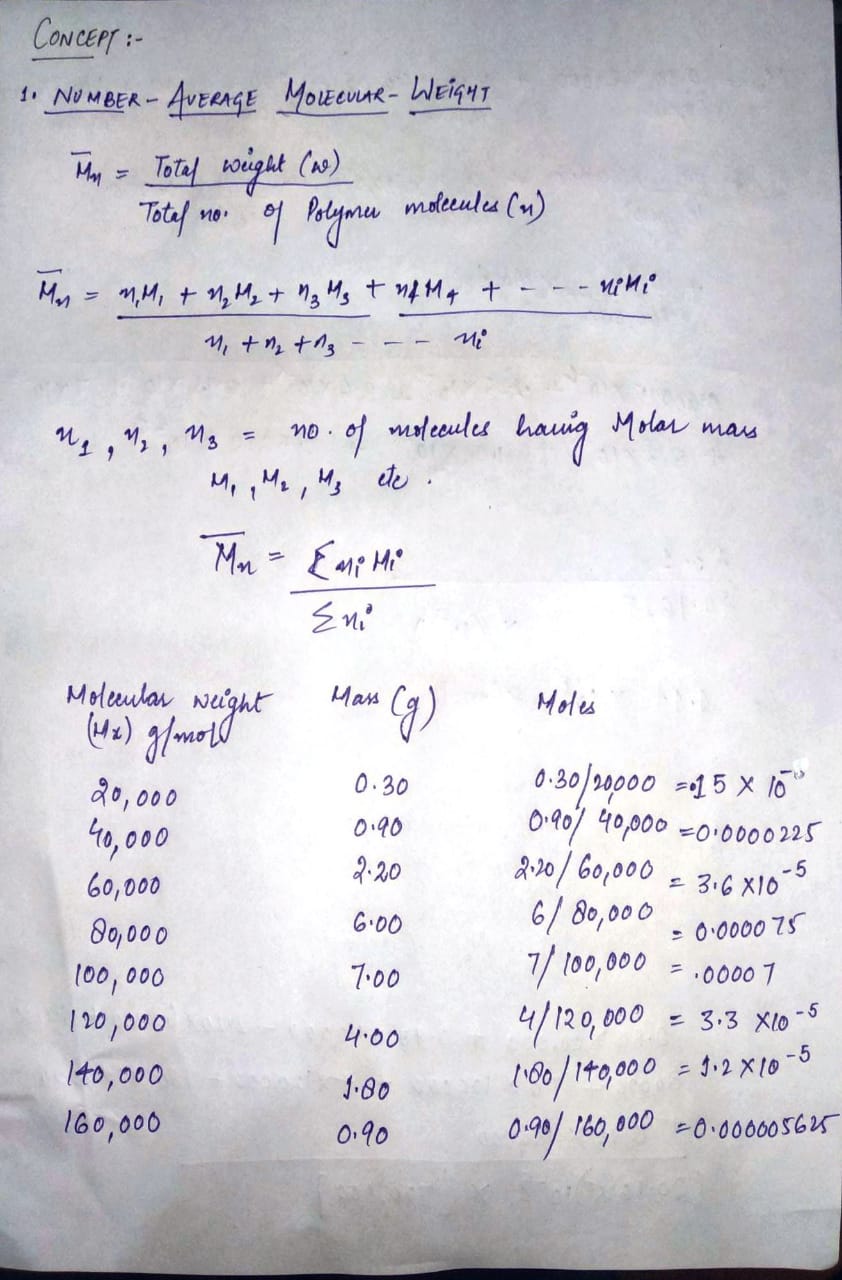 CONCEPT :-
1. NUMBER - AVERAGE MOLECULAR - WEIGHT
M̅n = Total weight (w)
Total no. of Polymer molecules (n)
M̅n = n₁M₁ + n₂M₂ + n₃M₃ + n4M4 + - - - niMi
n₁ + n₂ + n₃ - - - ni
n₁, n₂, n₃ = no. of molecules having Molar mass
M₁, M₂, M₃ etc.
M̅n = Σ ni Mi
Σ ni
Molecular weight Mass (g) Moles
(Mx) g/mol
20,000 0.30 0.30/20,000 = 15 X 10
40,000 0.90 0.90/ 40,000 = 0.0000225
60,000 2.20 2.20/ 60,000 = 3.6 X10⁻⁵
80,000 6.00 6/ 80,000 = 0.000075
100,000 7.00 7/ 100,000 = .00007
120,000 4.00 4/120,000 = 3.3 X10⁻⁵
140,000 1.80 1.80/140,000 = 1.2 X10⁻⁵
160,000 0.90 0.90/ 160,000 = 0.000005625